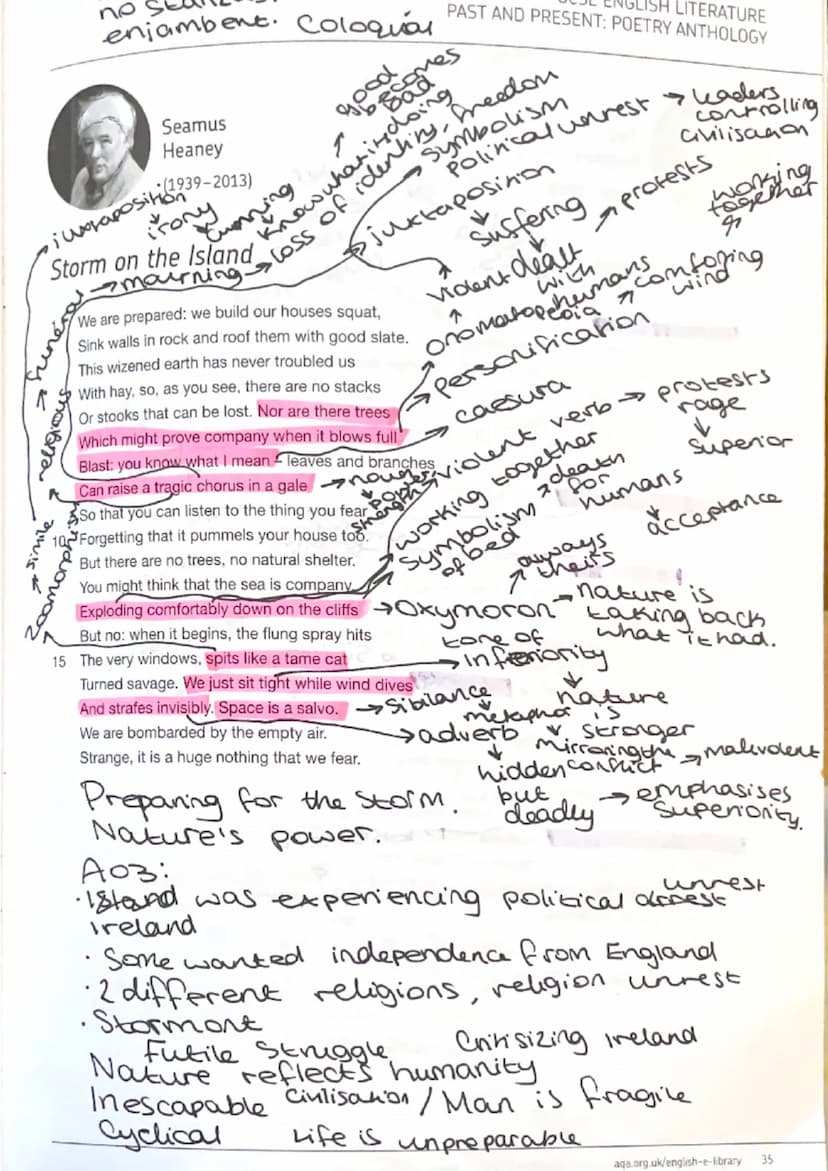 no
enjambent. Coloquial
ENGLISH LITERATURE
PAST AND PRESENT: POETRY ANTHOLOGY
Seamus
Heaney
(1939–2013)
good
becomes
bad
juxtaposition
irony
cunning
know what it's doing
loss of identity, freedom
symbolism
political unrest → leaders
controlling
civilisation
juxtaposition
suffering
protests
working
together
violent
dealt
with
humans
Storm on the Island
→ mourning →
funeral
religious
onomatopoeia
comforing
wind
personification
caesura
We are prepared: we build our houses squat,
Sink walls in rock and roof them with good slate.
This wizened earth has never troubled us
With hay, so, as you see, there are no stacks
Or stooks that can be lost. Nor are there trees
Which might prove company when it blows full
Blast: you know what I mean – leaves and branches
Can raise a tragic chorus in a gale
So that you can listen to the thing you fear
10 Forgetting that it pummels your house too.
But there are no trees, no natural shelter.
You might think that the sea is company,
Exploding comfortably down on the cliffs
But no: when it begins, the flung spray hits
15 The very windows, spits like a tame cat
Turned savage. We just sit tight while wind dives
And strafes invisibly. Space is a salvo.
We are bombarded by the empty air.
Strange, it is a huge nothing that we fear.
violent verb → protests
rage
superior
power
strength
working together
symbolism
of bed
death
for
humans
acceptance
simile
Zoomorphism
always
theirs
→ Oxymoron → nature is
taking back
what it had.
tone of
inferiority
nature
is
stronger
→ sibilance
metaphor
mirroring the
conflict → malevolent
→ adverb
hidden
but
deadly
→ emphasises
superiority.
Preparing for the storm.
Nature's power.
AO3:
· Island was experiencing political unrest
Ireland
· Some wanted independence from England
· 2 different religions, religion unrest
· Stormont
Futile struggle
Critisizing Ireland
Nature reflects humanity
Inescapable civilisation / Man is fragile
Cyclical Life is unpreparable
aqa.org.uk/english-e-library 35